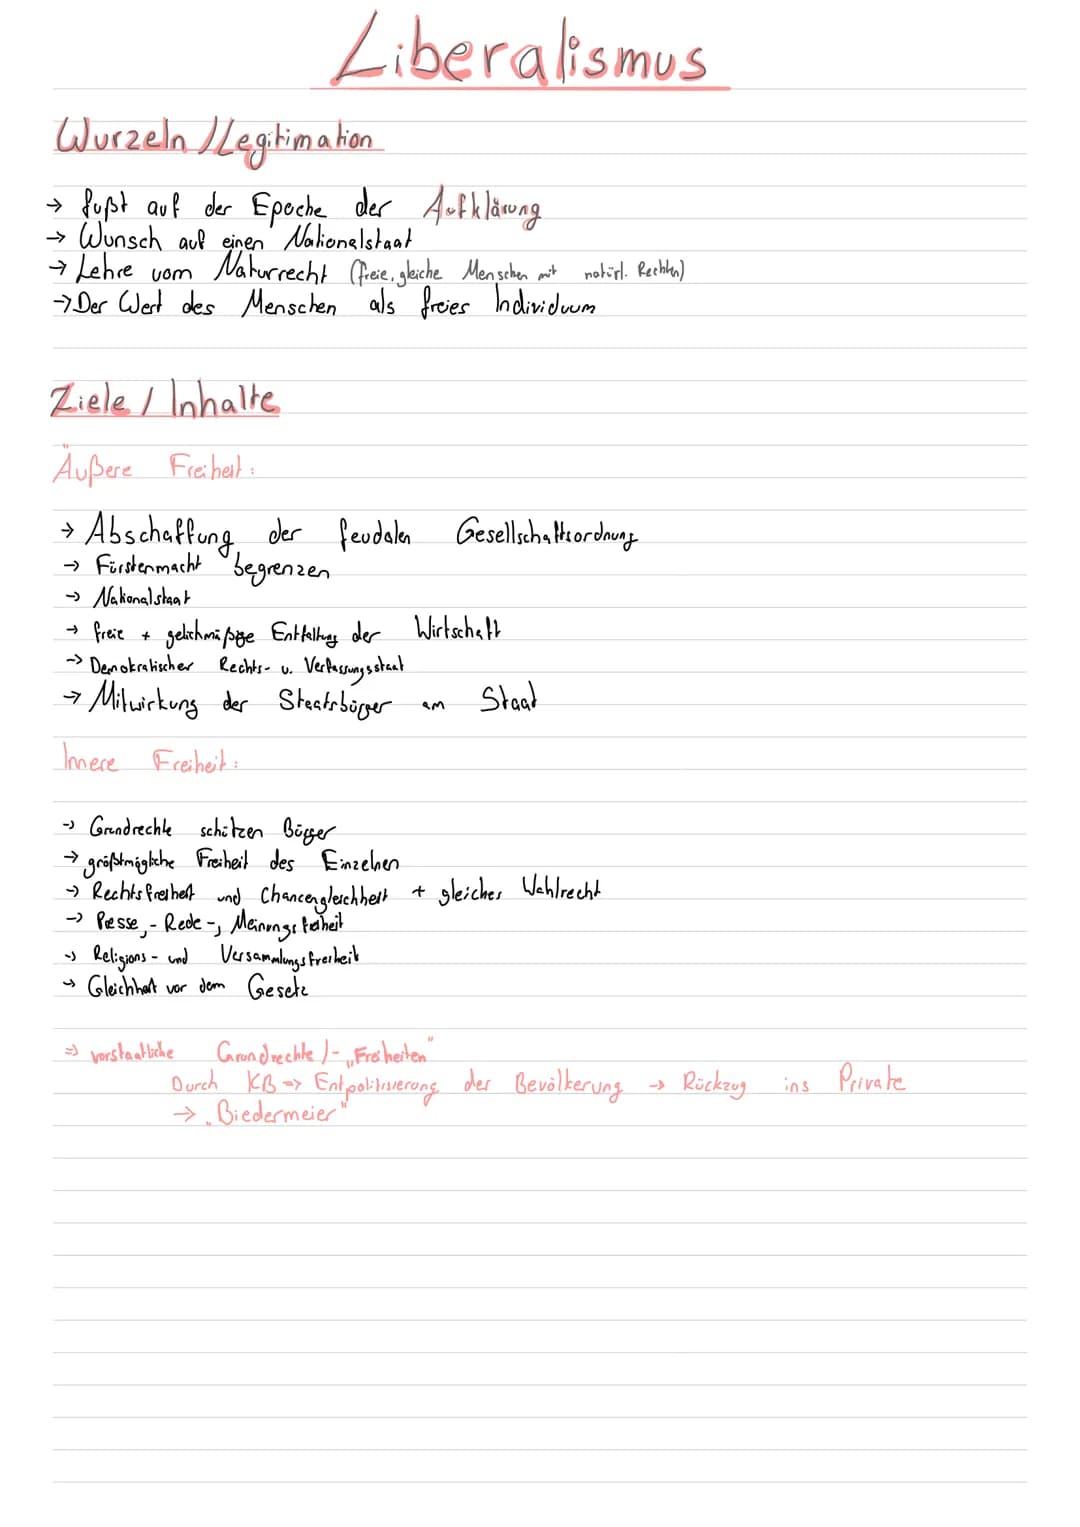 Liberalismus
Wurzeln / Legitimation
→ fußt auf der Epoche der Aufklärung
→ Wunsch auf einen Nationalstaat
→ Lehre vom Naturrecht (freie, gleiche Menschen mit natürl. Rechten)
→ Der Wert des Menschen als freies Individuum
Ziele / Inhalte
Äußere Freiheit:
→ Abschaffung der feudalen Gesellschaftsordnung
→ Fürstenmacht begrenzen
→ Nationalstaat
→ freie + gelichmäßige Entfaltung der Wirtschaft
→ Demokratischer Rechts- u. Verfassungsstaat
→ Mitwirkung der Staatsbürger am Staat
Innere Freiheit:
→ Grundrechte schützen Bürger
→ größtmögliche Freiheit des Einzelnen
→ Rechtsfreiheit und Chancengleichheit + gleiches Wahlrecht
→ Presse,- Rede-, Meinungsfreiheit
→ Religions- und Versammlungsfreiheit
→ Gleichheit vor dem Gesetz
⇒ vorstaatliche Grundrechte /- „Freiheiten"
Durch KB ⇒ Entpolitisierung der Bevölkerung → Rückzug ins Private
→ „Biedermeier"